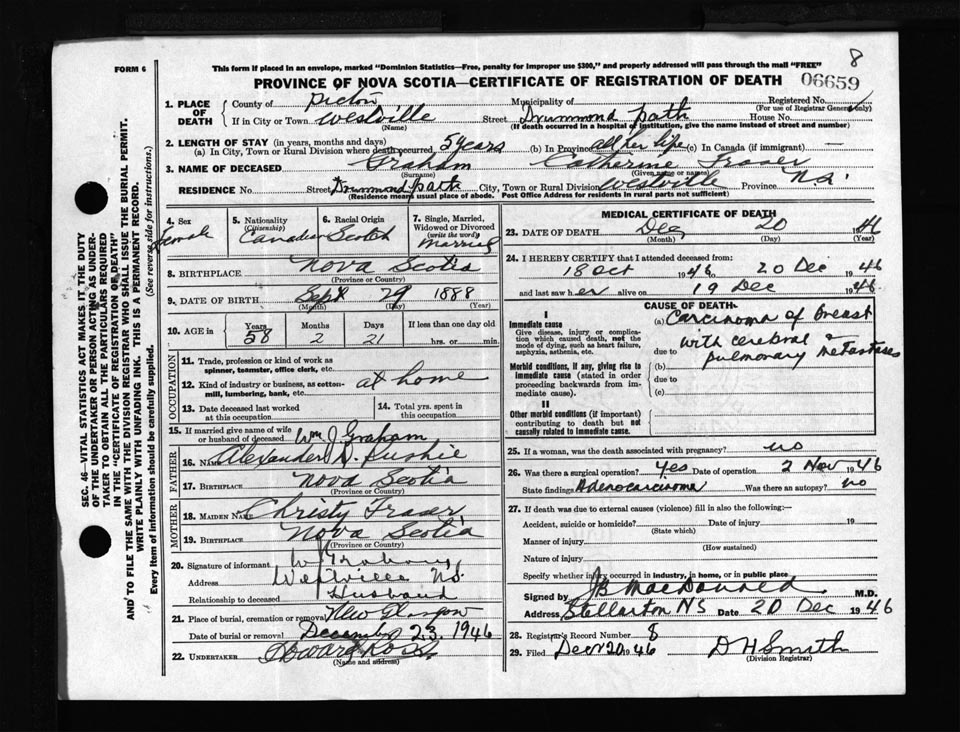 8
FORM 6
This form if placed in an envelope, marked "Dominion Statistics—Free, penalty for improper use $300," and properly addressed will pass through the mail "FREE"
PROVINCE OF NOVA SCOTIA—CERTIFICATE OF REGISTRATION OF DEATH
06659
SEC. 46—VITAL STATISTICS ACT MAKES IT THE DUTY
OF THE UNDERTAKER OR PERSON ACTING AS UNDER-
TAKER TO OBTAIN ALL THE PARTICULARS REQUIRED
IN THE "CERTIFICATE OF REGISTRATION OF DEATH"
AND TO FILE THE SAME WITH THE DIVISION REGISTRAR WHO SHALL ISSUE THE BURIAL PERMIT.
WRITE PLAINLY WITH UNFADING INK. THIS IS A PERMANENT RECORD.
Every item of information should be carefully supplied. (See reverse side for instructions.)
1. PLACE OF DEATH
County of Pictou Municipality of Registered No.
(For use of Registrar General only)
If in City or Town Westville Street Drummond path House No.
(Name) (If death occurred in a hospital or institution, give the name instead of street and number)
2. LENGTH OF STAY (in years, months and days)
(a) In City, Town or Rural Division where death occurred 5 years (b) In Province all her life (c) In Canada (if immigrant) —
3. NAME OF DECEASED Graham Catherine Fraser
(Surname) (Given name or names)
RESIDENCE No. Street Drummond path City, Town or Rural Division Westville Province N.S.
(Residence means usual place of abode. Post Office Address for residents in rural parts not sufficient)
4. Sex Female
5. Nationality (Citizenship) Canadian
6. Racial Origin Scotch
7. Single, Married, Widowed or Divorced (write the word) Married
8. BIRTHPLACE Nova Scotia
(Province or Country)
9. DATE OF BIRTH Sept 29 1888
(Month) (Day) (Year)
10. AGE in Years Months Days If less than one day old
58 2 21 hrs. or min.
OCCUPATION
11. Trade, profession or kind of work as
spinner, teamster, office clerk, etc.
12. Kind of industry or business, as cotton-
mill, lumbering, bank, etc. at home
13. Date deceased last worked
at this occupation
14. Total yrs. spent in
this occupation
15. If married give name of wife
or husband of deceased Wm J Graham
FATHER
16. NAME Alexander D.
17. BIRTHPLACE Nova Scotia
(Province or Country)
MOTHER
18. MAIDEN NAME Christy Fraser
19. BIRTHPLACE Nova Scotia
(Province or Country)
20. Signature of informant W Graham
Address Westville N.S.
Relationship to deceased Husband
21. Place of burial, cremation or removal New Glasgow
Date of burial or removal December 23, 1946
22. UNDERTAKER Ross
(Name and address)
MEDICAL CERTIFICATE OF DEATH
23. DATE OF DEATH Dec 20 1946
(Month) (Day) (Year)
24. I HEREBY CERTIFY that I attended deceased from:
18 Oct 1946 to 20 Dec 1946
and last saw her alive on 19 Dec 1946
CAUSE OF DEATH
I
Immediate cause
Give disease, injury or complica-
tion which caused death, not the
mode of dying, such as heart failure,
asphyxia, asthenia, etc.
(a) Carcinoma of breast
with cerebral &
due to pulmonary metastases
Morbid conditions, if any, giving rise to
immediate cause (stated in order
proceeding backwards from im-
mediate cause).
(b)
due to
(c)
II
Other morbid conditions (if important)
contributing to death but not
causally related to immediate cause.
25. If a woman, was the death associated with pregnancy? no
26. Was there a surgical operation? Yes Date of operation 2 Nov 1946
State findings Adenocarcinoma Was there an autopsy? no
27. If death was due to external causes (violence) fill in also the following:—
Accident, suicide or homicide? Date of injury 19
(State which)
Manner of injury
(How sustained)
Nature of injury
Specify whether injury occurred in industry, in home, or in public place
Signed by JB MacDonald M.D.
Address Stellarton NS Date 20 Dec 1946
28. Registrar's Record Number 8
29. Filed Dec 20 1946 D H Smith
(Division Registrar)